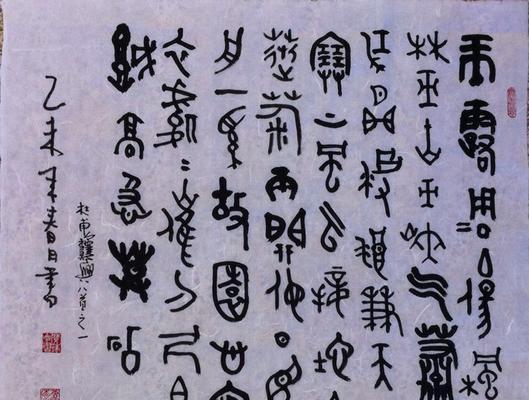 玉露凋傷楓
林巫山巫峽氣蕭
江間波浪兼天
塞上風雲接地
叢菊兩開他日
舟一繫故園心
衣處〻催刀尺
城高急暮砧
杜甫秋興八首之一
乙未年春月書